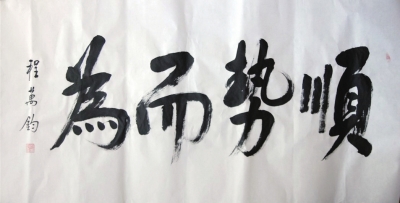 順势而為
程萬鈞